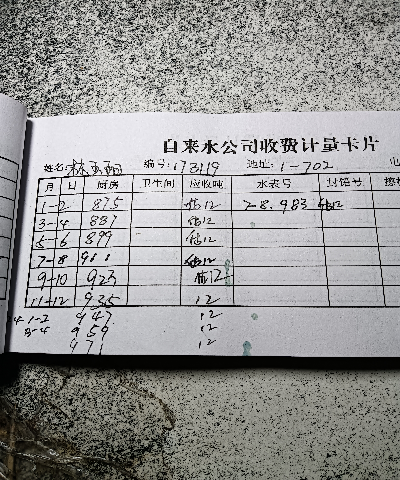 自来水公司收费计量卡片
姓名: 林玉 编号: 173119 地址: 1-702 电
月 日 厨房 卫生间 应收吨 水表号 封铅号
1-2 875 估12 28.983 估12
3-4 887 估12
5-6 899 估12
7-8 估12
9-10 923 估12
11-12 935 12
1-2 947 12
3-4 959 12
971 12